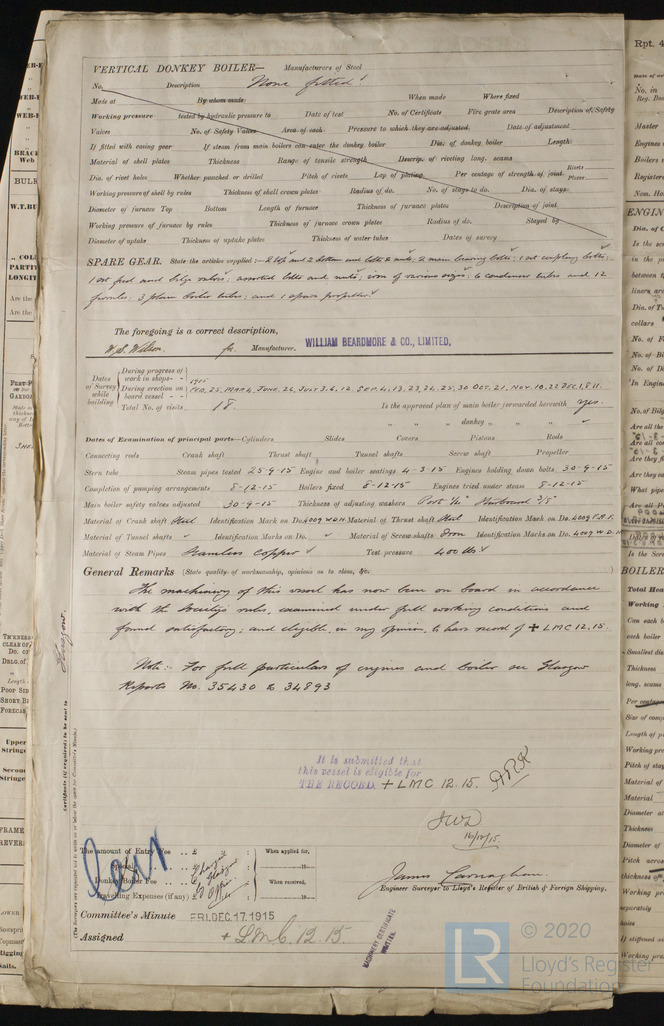 VERTICAL DONKEY BOILER— Manufacturers of Steel
No. Description None fitted!
Made at By whom made When made Where fixed
Working pressure tested by hydraulic pressure to Date of test No. of Certificate Fire grate area Description of Safety
Valves No. of Safety Valves Area of each Pressure to which they are adjusted Date of adjustment
If fitted with easing gear If steam from main boilers can enter the donkey boiler Dia. of donkey boiler Length
Material of shell plates Thickness Range of tensile strength Descrip. of riveting long. seams
Dia. of rivet holes Whether punched or drilled Pitch of rivets Lap of plating Per centage of strength of joint Rivets Plates
Working pressure of shell by rules Thickness of shell crown plates Radius of do. No. of stays to do. Dia. of stays
Diameter of furnace Top Bottom Length of furnace Thickness of furnace plates Description of joint
Working pressure of furnace by rules Thickness of furnace crown plates Radius of do. Stayed by
Diameter of uptake Thickness of uptake plates Thickness of water tubes Dates of survey
SPARE GEAR. State the articles supplied:— 2 top and 2 bottom end bolts & nuts; 2 main bearing bolts; 1 set coupling bolts;
1 set feed and bilge valves; assorted bolts and nuts; iron of various sizes; 6 condenser tubes and 12
ferrules; 3 plain boiler tubes; and 1 spare propeller.
The foregoing is a correct description,
W.S. Wilson. for Manufacturer. WILLIAM BEARDMORE & CO., LIMITED.
Dates of Survey while building
During progress of work in shops - - 1915
During erection on board vessel - - FEB. 25, MAR 4, JUNE. 26, JULY 3. 6. 12, SEP. 4. 13. 23. 24. 25. 30 OCT. 21, NOV. 10. 22 DEC. 1. 8. 11.
Total No. of visits 18. Is the approved plan of main boiler forwarded herewith yes.
" " " donkey " "
Dates of Examination of principal parts—Cylinders Slides Covers Pistons Rods
Connecting rods Crank shaft Thrust shaft Tunnel shafts Screw shaft Propeller
Stern tube Steam pipes tested 25-9-15 Engine and boiler seatings 4-3-15 Engines holding down bolts 30-9-15
Completion of pumping arrangements 8-12-15 Boilers fixed 8-12-15 Engines tried under steam 8-12-15
Main boiler safety valves adjusted 30-9-15 Thickness of adjusting washers Port Starboard 3/8"
Material of Crank shaft Steel Identification Mark on Do. 4009 W.D.H. Material of Thrust shaft Steel Identification Mark on Do. 4009
Material of Tunnel shafts Identification Marks on Do. Material of Screw shafts Iron Identification Marks on Do. 4009 W.D.H
Material of Steam Pipes Seamless Copper Test pressure 400 lbs
General Remarks (State quality of workmanship, opinions as to class, &c.
The machinery of this vessel has now been on board in accordance
with the Society's rules, examined under full working conditions and
found satisfactory; and eligible, in my opinion, to have record of + LMC 12.15.
Note:- For full particulars of engines and boiler see Glasgow
Reports No. 35430 & 34893
Glasgow.
It is submitted that
this vessel is eligible for
THE RECORD. + LMC 12.15.
16/12/15.
The amount of Entry Fee .. £ : : When applied for,
Special
Donkey Boiler Fee
Travelling Expenses (if any) £ When received,
James Carnaghan.
Engineer Surveyor to Lloyd's Register of British & Foreign Shipping.
Committee's Minute FRI. DEC. 17. 1915
Assigned + L.M.C. 12.15.
MACHINERY CERTIFICATE
WRITTEN.
© 2020
LR
Lloyd's Register
Foundation
Rpt. 4
No. in
Master
ENGIN
BOILER